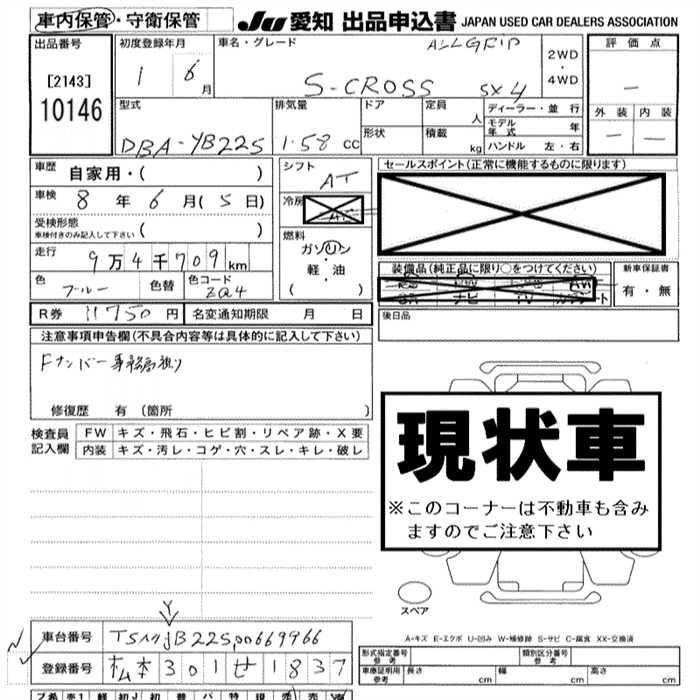 車内保管・守衛保管
JU 愛知 出品申込書 JAPAN USED CAR DEALERS ASSOCIATION
出品番号
[2143]
10146
初度登録年月
1 6月
車名・グレード
ALLGRIP
S-CROSS SX4
2WD
・
4WD
評価点
—
外装 内装
— —
型式
DBA-YB22S
排気量
1.58 cc
ドア
形状
定員
人
積載
kg
ディーラー・並行
モデル年式 年
ハンドル 左・右
車歴
自家用・( )
車検 8年 6月(5日)
受検形態
車検付きのみ記入して下さい ( )
走行
9万4千709km
色
ブルー
色替
色コード
ZQ4
シフト
AT
冷房
燃料
ガソリン
・
軽・油
( )
セールスポイント(正常に機能するものに限ります)
装備品(純正品に限り○をつけてください)
ナビ TV
新車保証書
有・無
R券 11750円
名変通知期限 月 日
後日品
注意事項申告欄(不具合内容等は具体的に記入して下さい)
Fナンバー事務局預り
修復歴 有 (箇所 )
検査員記入欄
FW キズ・飛石・ヒビ割・リペア跡・X要
内装 キズ・汚レ・コゲ・穴・スレ・キレ・破レ
現状車
※このコーナーは不動車も含み
ますのでご注意下さい
スペア
A-キズ E-エクボ U-凹み W-補修跡 S-サビ C-腐食 XX-交換済
Y
車台番号 TSMJB22S00669966
登録番号 松本 301 せ 1837
形式指定番号
参考
類別区分番号
参考
車庫証明用
参考
長さ cm
幅 cm
高さ cm